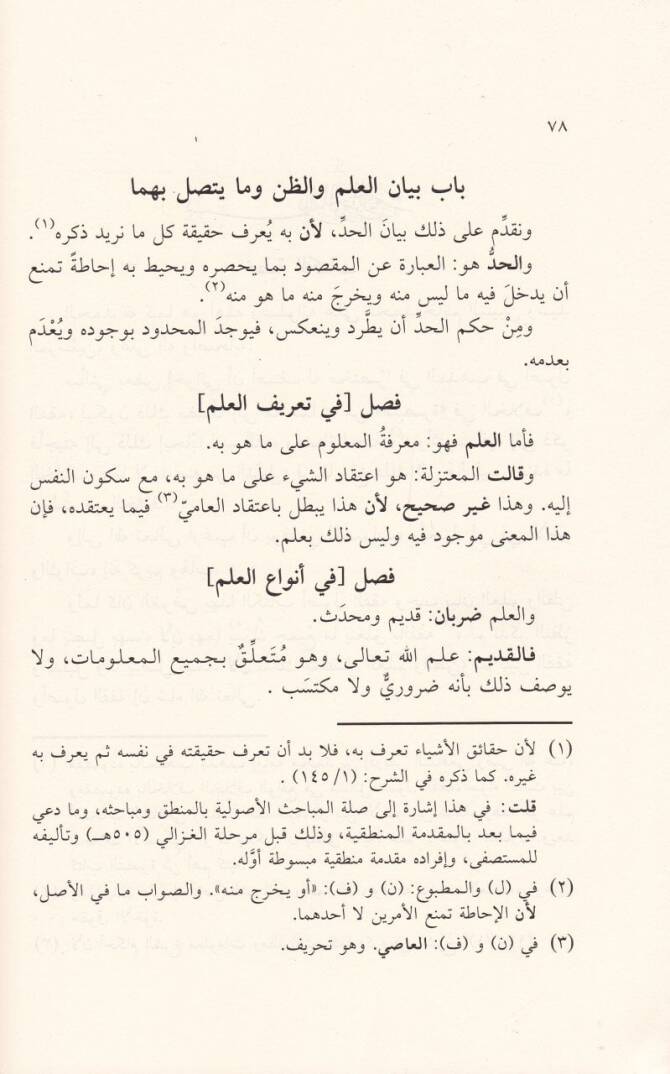 ٧٨
باب بيان العلم والظن وما يتصل بهما
ونقدِّم على ذلك بيانَ الحدِّ، لأن به يُعرف حقيقة كل ما نريد ذكره(١).
والحدُّ هو: العبارة عن المقصود بما يحصره ويحيط به إحاطةً تمنع
أن يدخلَ فيه ما ليس منه ويخرجَ منه ما هو منه(٢).
ومِنْ حكم الحدِّ أن يطَّرد وينعكس، فيوجدَ المحدود بوجوده ويُعْدَم
بعدمه.
فصل [في تعريف العلم]
فأما العلم فهو: معرفةُ المعلوم على ما هو به.
وقالت المعتزلة: هو اعتقاد الشيء على ما هو به، مع سكون النفس
إليه. وهذا غير صحيح، لأن هذا يبطل باعتقاد العاميّ(٣) فيما يعتقده، فإن
هذا المعنى موجود فيه وليس ذلك بعلم.
فصل [في أنواع العلم]
والعلم ضربان: قديم ومحدَث.
فالقديم: علم الله تعالى، وهو مُتَعلِّقٌ بجميع المعلومات، ولا
يوصف ذلك بأنه ضروريٌّ ولا مكتسَب .
(١) لأن حقائق الأشياء تعرف به، فلا بد أن تعرف حقيقته في نفسه ثم يعرف به
غيره. كما ذكره في الشرح: (١/ ١٤٥) .
قلت: في هذا إشارة إلى صلة المباحث الأصولية بالمنطق ومباحثه، وما دعي
فيما بعد بالمقدمة المنطقية، وذلك قبل مرحلة الغزالي (٥٠٥هـ) وتأليفه
للمستصفى، وإفراده مقدمة منطقية مبسوطة أوَّله.
(٢) في (ل) والمطبوع: (ن) و (ف): «أو يخرج منه». والصواب ما في الأصل،
لأن الإحاطة تمنع الأمرين لا أحدهما.
(٣) في (ن) و (ف): العاصي. وهو تحريف.